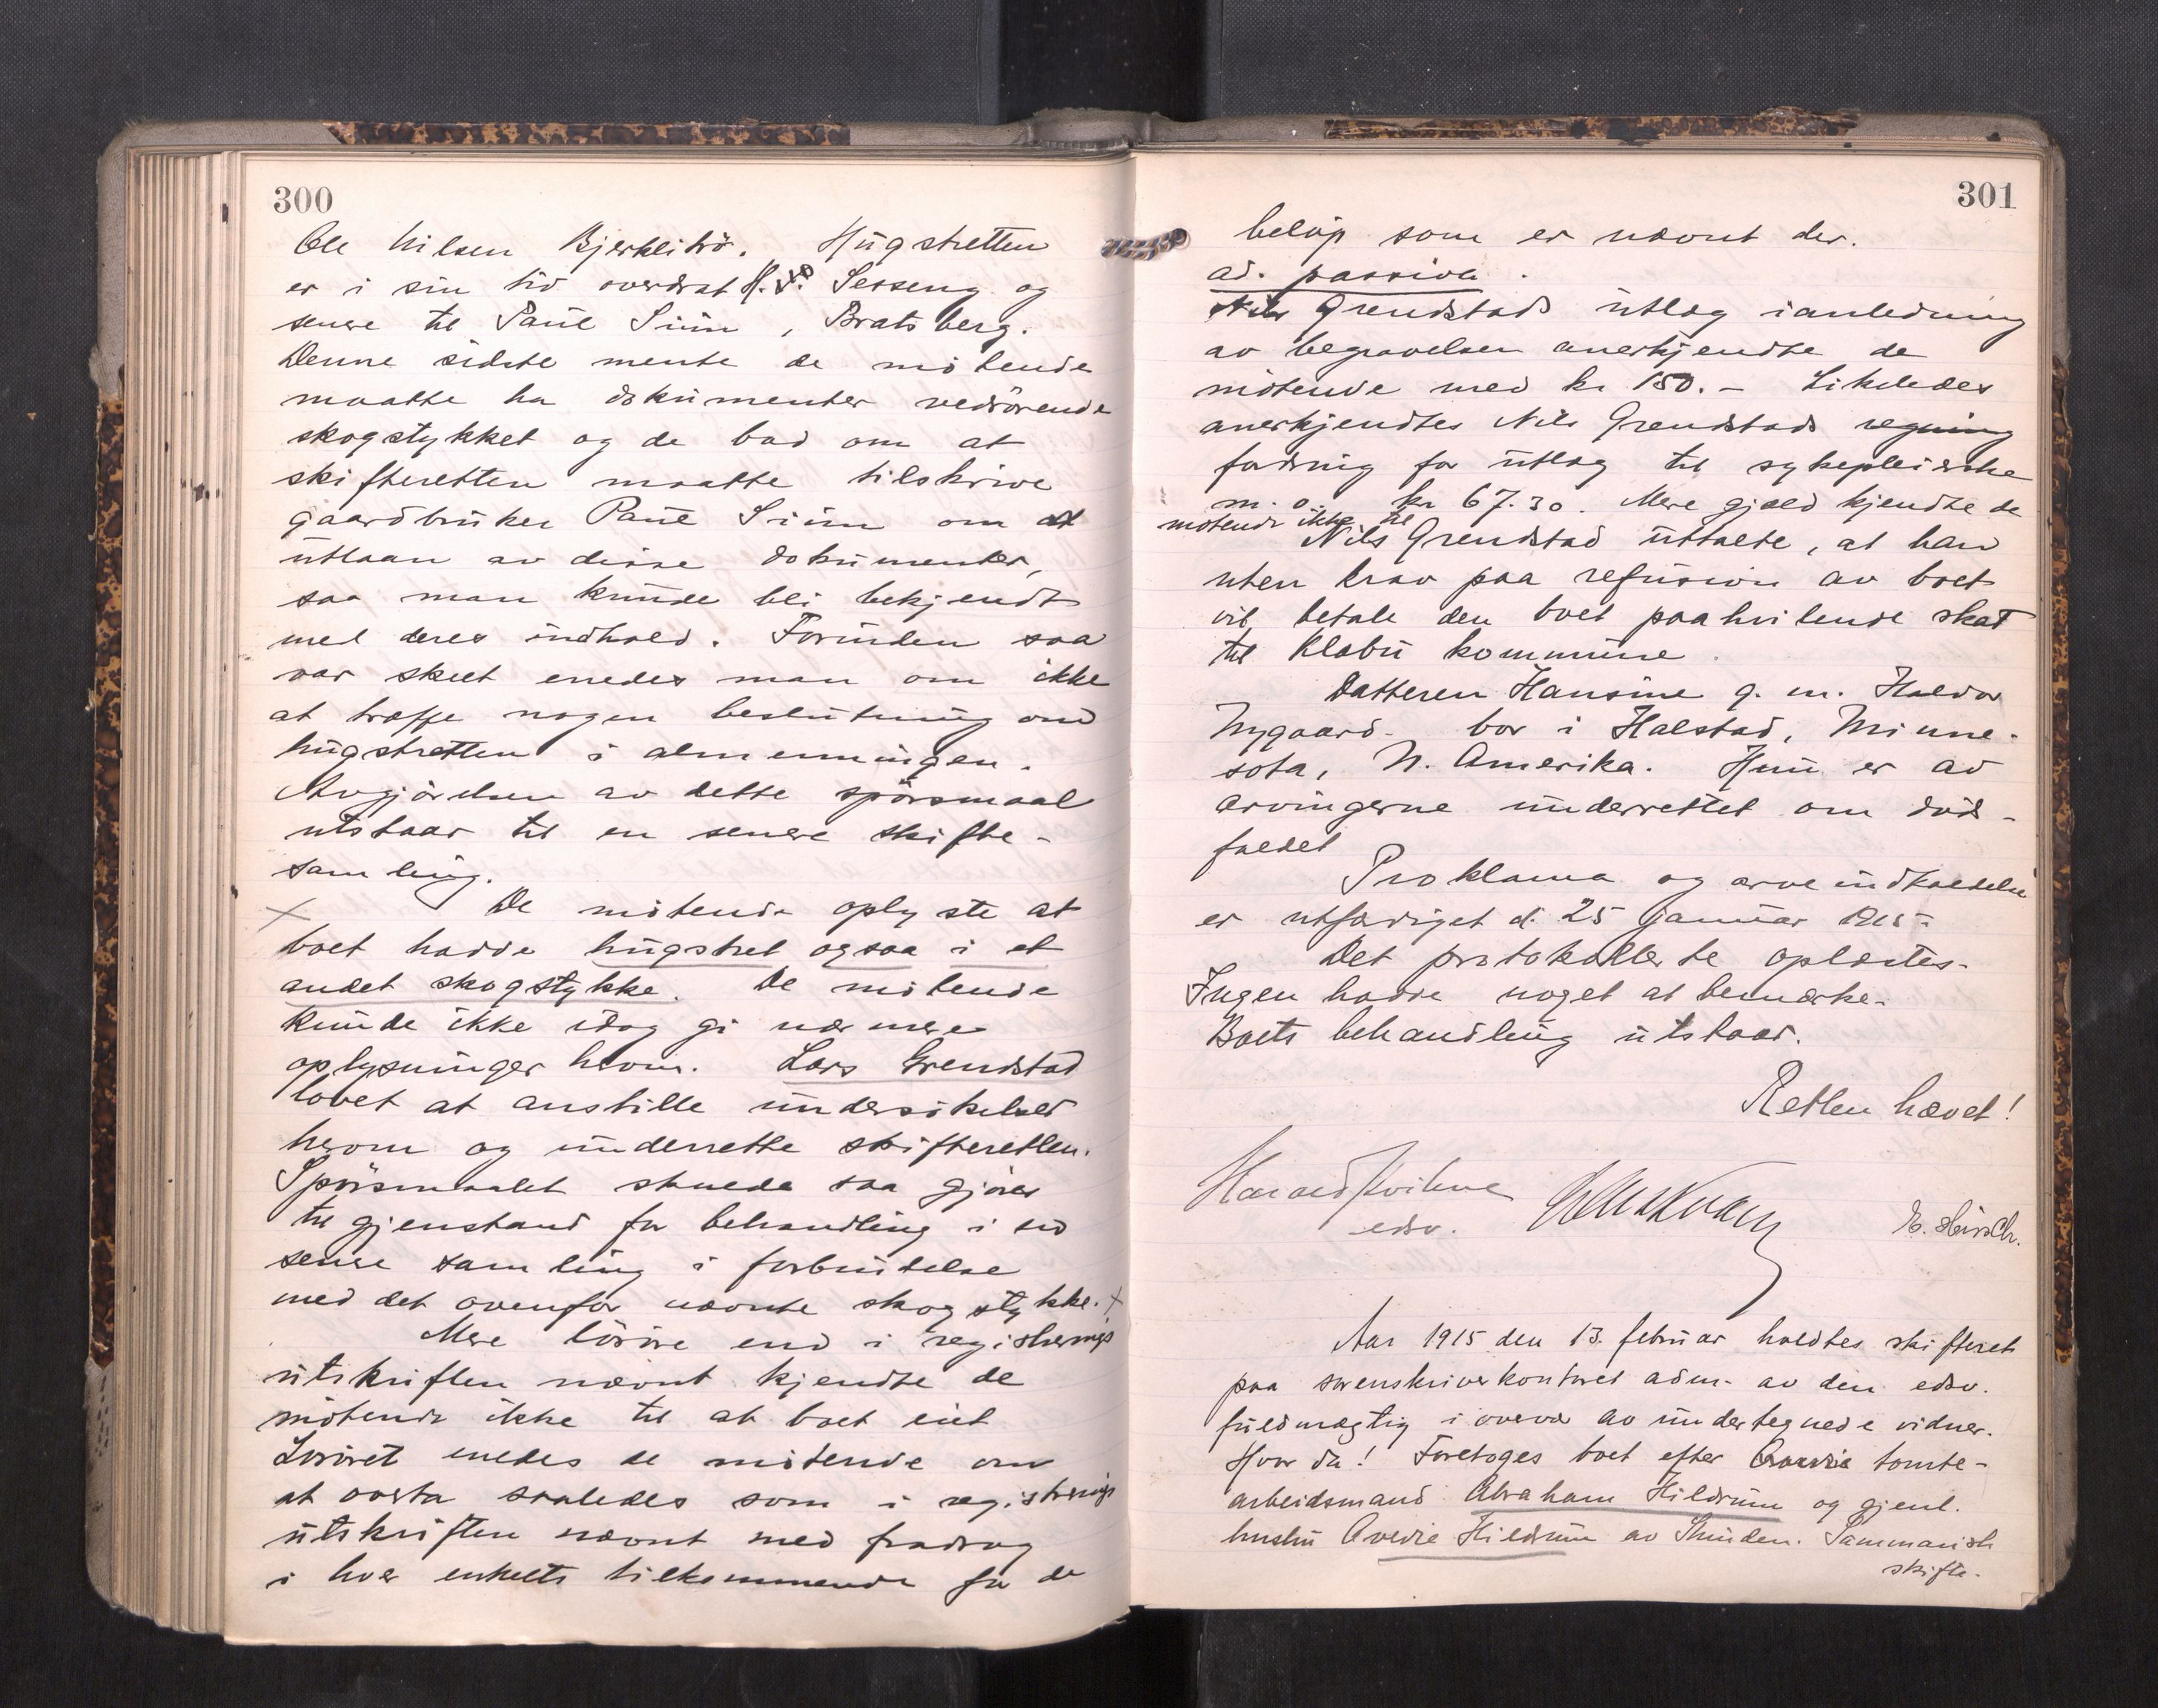 300
Ole Nilsen Bjerklitrö. Hugstretten
er i sin tid overdrat H. J. Sesseng og
senere til Paul Siun, Bratsberg.
Denne sidste mente de mötende
maatte ha dokumenter vedrörende
skogstykket og de bad om at
skifteretten maatte tilskrive
gaardbruker Paul Siun om at
utlaan av disse dokumenter,
saa man kunde bli bekjendt
med deres indhold. Forinden saa
var skeet enedes man om ikke
at træffe nogen beslutning om
hugstretten i almenningen.
Avgjörelsen av dette spörsmaal
utstaar til en senere skifte-
samling.
De mötende oplyste at
boet hadde hugstret ogsaa i et
andet skogstykke. De mötende
kunde ikke idag gi nærmere
oplysninger herom. Lars Grendstad
lovet at anstille undersökelser
herom og underrette skifteretten.
Spörsmaalet skulde saa gjöres
til gjenstand for behandling i en
senere samling i forbindelse
med det ovenfor nævnte skogstykke.
Mere lösöre end i registrerings
utskriften nævnt kjendte de
mötende ikke til at boet eiet
Lösöret enedes de mötende om
at overta saaledes som i registrerings
utskriften nævnt med fradrag
i hver enkelts tilkommende for de
301
belöp som er nævnt der.
ad. passiva.
Nils Grendstads utlæg ianledning
av begravelsen anerkjendte de
mötende med kr 150.- Likeledes
anerkjendtes Nils Grendstads regning
fordring for utlæg til sykepleierske
m. v. kr 67.30. Mere gjæld kjendte de
mötende ikke til
Nils Grendstad uttalte, at han
uten krav paa refusion av boet
vil betale den boet paahvilende skat
til Klæbu kommune.
Datteren Hansine g. m. Haldor
Nygaard bor i Halstad, Minne-
sota, N. Amerika. Hun er av
arvingerne underrettet om döds-
faldet
Proklama og arveindkaldelse
er utfærdiget d. 25 januar 1915-
Det protokollerte oplæstes.
Ingen hadde noget at bemærke.
Boets behandling utstaar.
Retten hævet!
Harald Kvikne
edsv.
E. Hirsch.
Aar 1915 den 13. februar holdtes skifteret
paa sorenskriverkontoret adm. av den edsv.
fuldmægtig i overvær av undertegnede vidner.
Hvor da! Foretoges boet efter tomte-
arbeidsmand Abraham Hildrum og gjenl.
hustru Ovedie Hildrum av Strinden. Sammarisk
skifte.